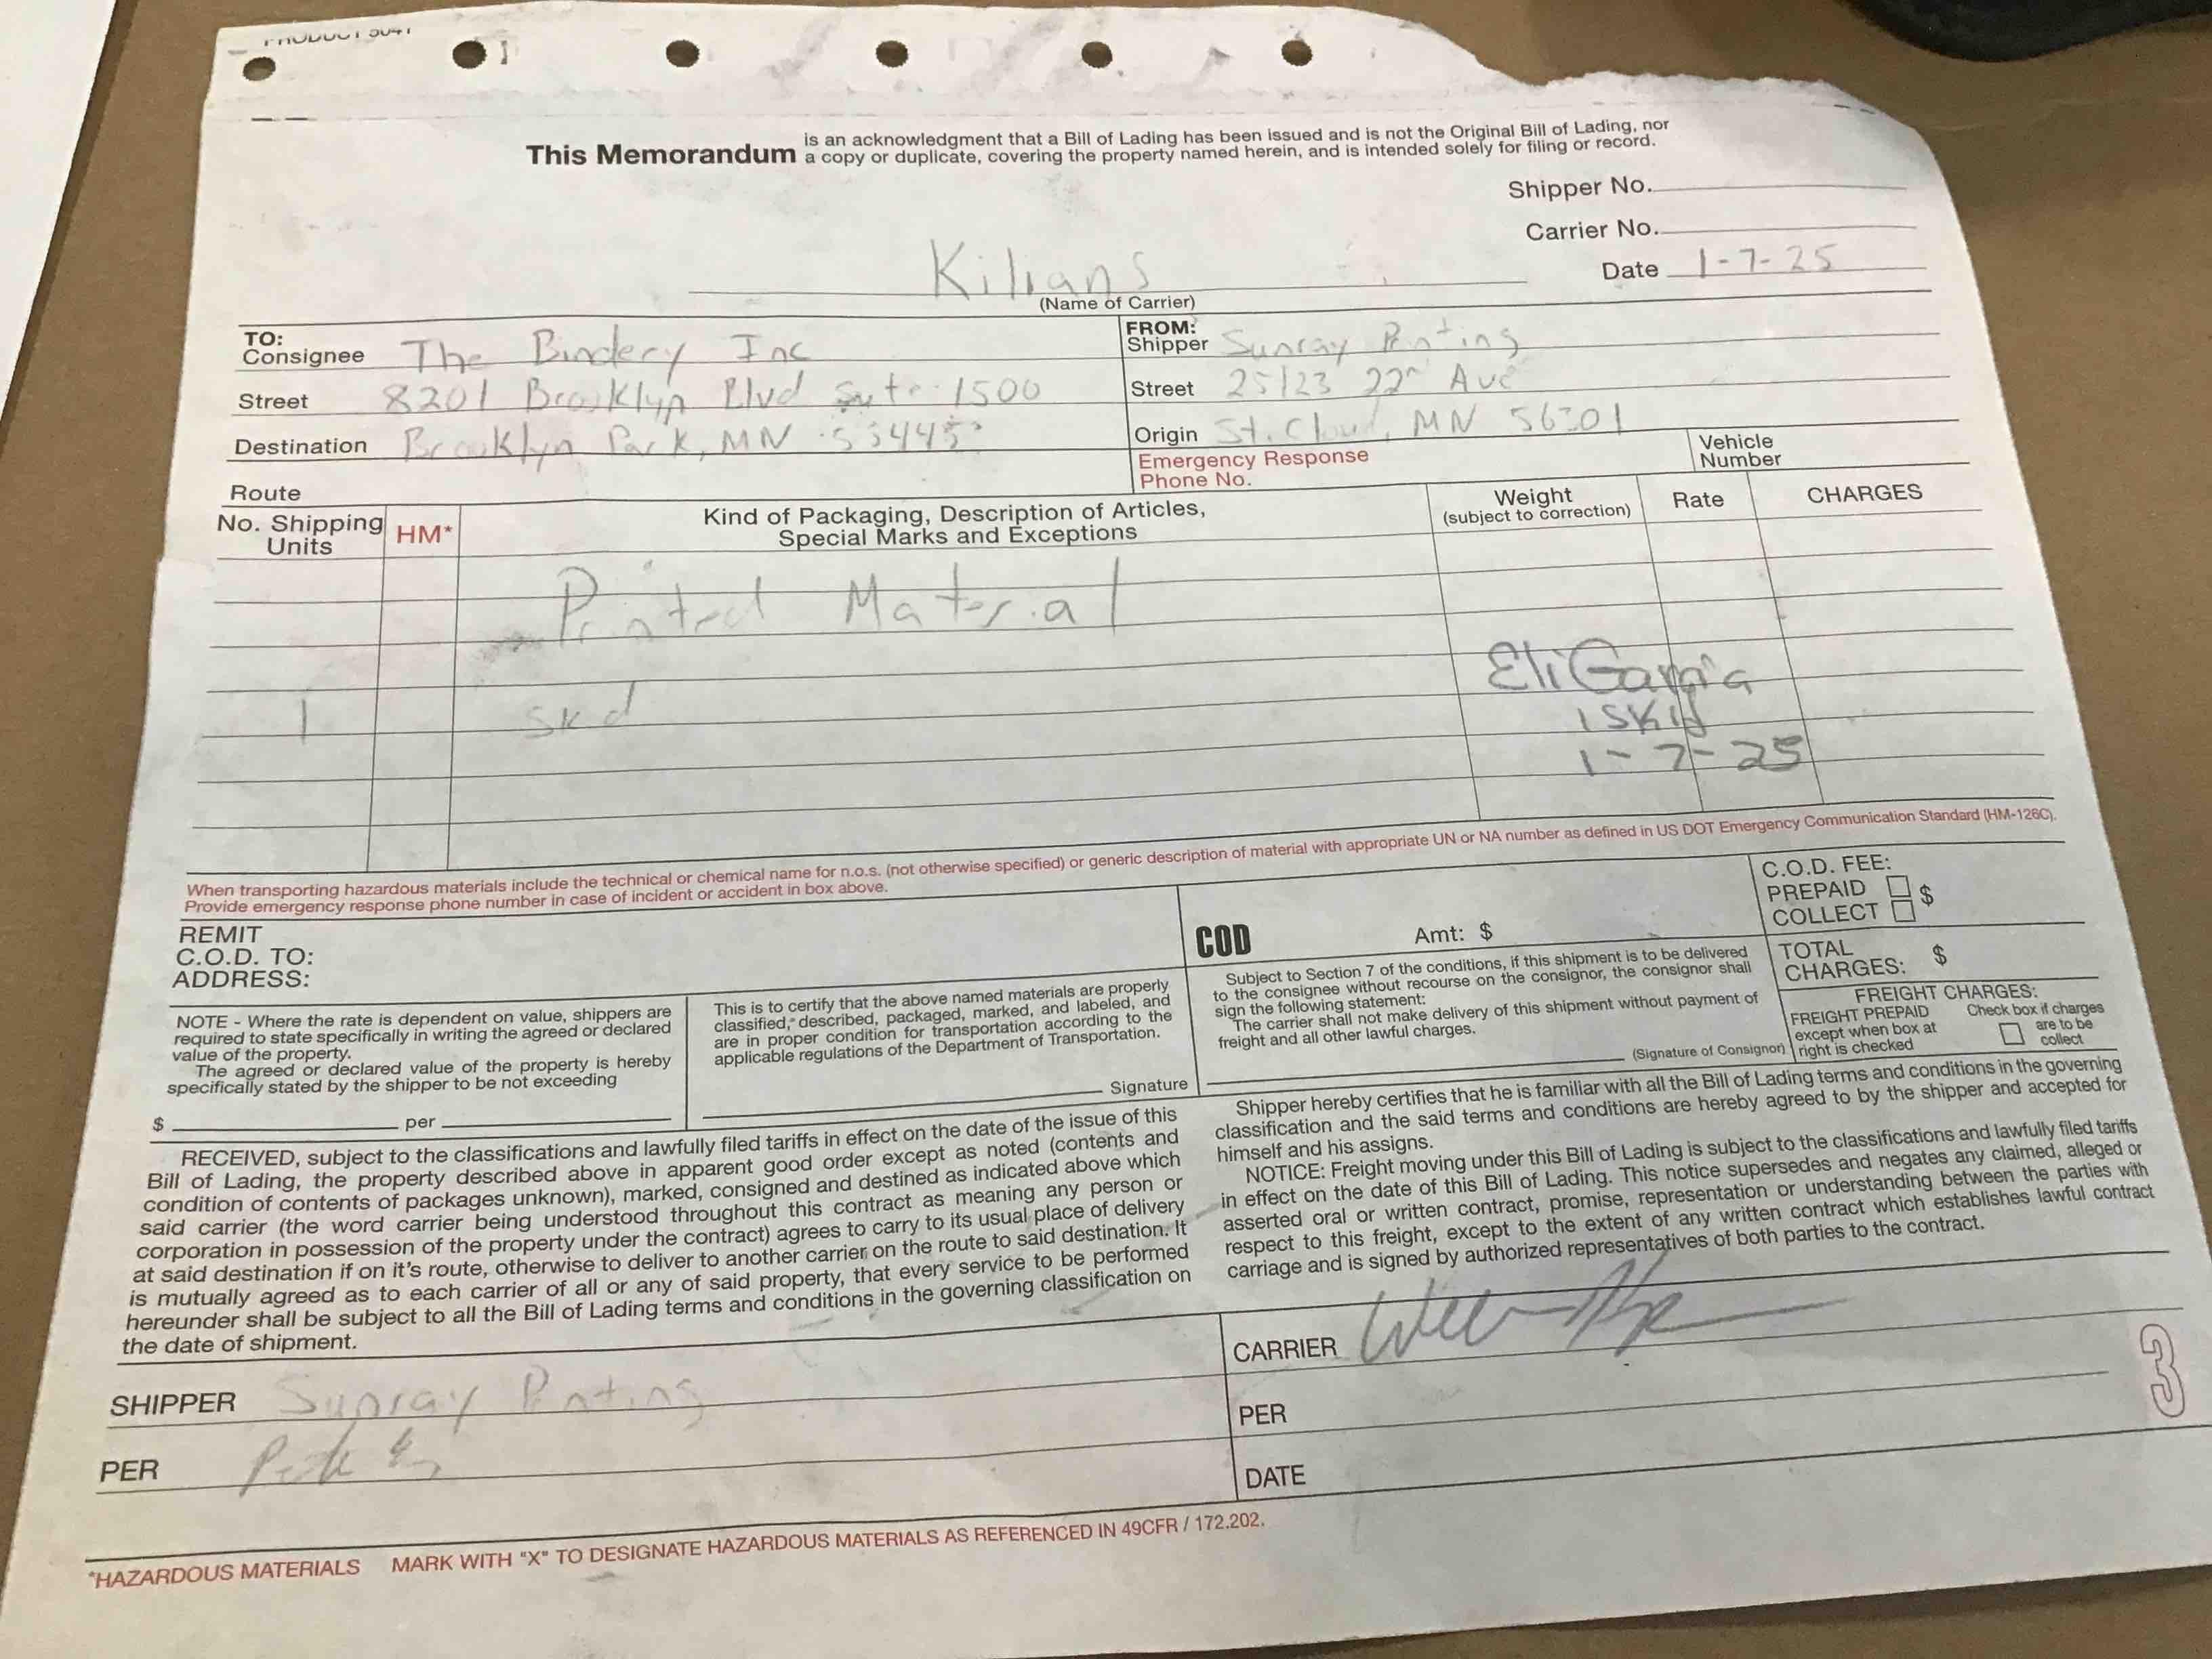 PRODUCT 5041
This Memorandum is an acknowledgment that a Bill of Lading has been issued and is not the Original Bill of Lading, nor
a copy or duplicate, covering the property named herein, and is intended solely for filing or record.
Shipper No.
Carrier No.
Date 1-7-25
Kilians
(Name of Carrier)
TO:
Consignee The Bindery Inc
Street 8201 Brooklyn Blvd Suite 1500
Destination Brooklyn Park, MN 55445
Route
FROM:
Shipper Sunray Printing
Street 25123 22nd Ave
Origin St. Cloud, MN 56301
Emergency Response
Phone No.
Vehicle
Number
No. Shipping
Units
HM*
Kind of Packaging, Description of Articles,
Special Marks and Exceptions
Weight
(subject to correction)
Rate
CHARGES
Printed Material
1 Skid
Eli Garcia
1 SKid
1-7-25
When transporting hazardous materials include the technical or chemical name for n.o.s. (not otherwise specified) or generic description of material with appropriate UN or NA number as defined in US DOT Emergency Communication Standard (HM-126C).
Provide emergency response phone number in case of incident or accident in box above.
REMIT
C.O.D. TO:
ADDRESS:
COD Amt: $
C.O.D. FEE:
PREPAID $
COLLECT
NOTE - Where the rate is dependent on value, shippers are
required to state specifically in writing the agreed or declared
value of the property.
The agreed or declared value of the property is hereby
specifically stated by the shipper to be not exceeding
$ per
This is to certify that the above named materials are properly
classified, described, packaged, marked, and labeled, and
are in proper condition for transportation according to the
applicable regulations of the Department of Transportation.
Signature
Subject to Section 7 of the conditions, if this shipment is to be delivered
to the consignee without recourse on the consignor, the consignor shall
sign the following statement:
The carrier shall not make delivery of this shipment without payment of
freight and all other lawful charges.
(Signature of Consignor)
TOTAL
CHARGES: $
FREIGHT CHARGES:
FREIGHT PREPAID
except when box at
right is checked
Check box if charges
are to be
collect
RECEIVED, subject to the classifications and lawfully filed tariffs in effect on the date of the issue of this
Bill of Lading, the property described above in apparent good order except as noted (contents and
condition of contents of packages unknown), marked, consigned and destined as indicated above which
said carrier (the word carrier being understood throughout this contract as meaning any person or
corporation in possession of the property under the contract) agrees to carry to its usual place of delivery
at said destination if on it's route, otherwise to deliver to another carrier on the route to said destination. It
is mutually agreed as to each carrier of all or any of said property, that every service to be performed
hereunder shall be subject to all the Bill of Lading terms and conditions in the governing classification on
the date of shipment.
Shipper hereby certifies that he is familiar with all the Bill of Lading terms and conditions in the governing
classification and the said terms and conditions are hereby agreed to by the shipper and accepted for
himself and his assigns.
NOTICE: Freight moving under this Bill of Lading is subject to the classifications and lawfully filed tariffs
in effect on the date of this Bill of Lading. This notice supersedes and negates any claimed, alleged or
asserted oral or written contract, promise, representation or understanding between the parties with
respect to this freight, except to the extent of any written contract which establishes lawful contract
carriage and is signed by authorized representatives of both parties to the contract.
SHIPPER Sunray Printing
PER
CARRIER
PER
DATE
3
*HAZARDOUS MATERIALS MARK WITH "X" TO DESIGNATE HAZARDOUS MATERIALS AS REFERENCED IN 49CFR / 172.202.